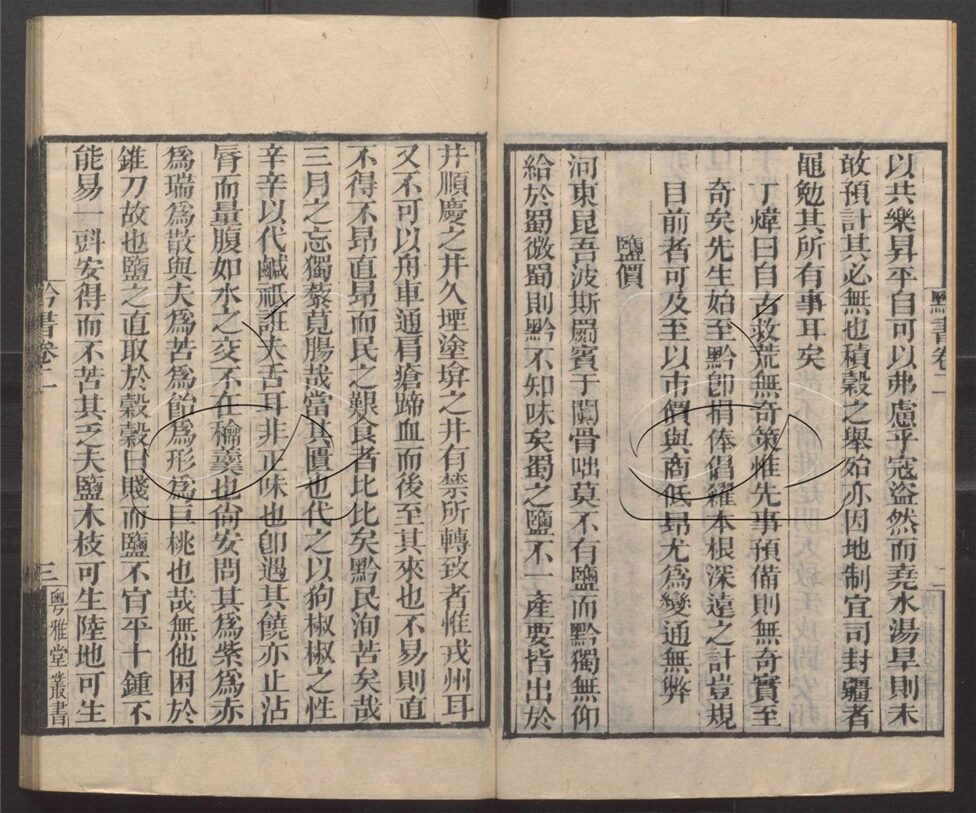 以共樂昇平自可以弗慮乎寇盜然而堯水湯旱則未
敢預計其必無也積穀之舉殆亦因地制宜司封疆者
黽勉其所有事耳矣
丁煒曰自古救荒無奇策惟先事預備則無奇實至
奇矣先生始至黔卽捐俸倡糴本根深遠之計豈規
目前者可及至以市價與商低昂尤爲變通無弊
鹽價
河東昆吾波斯罽賓于闐骨咄莫不有鹽而黔獨無仰
給於蜀微蜀則黔不知味矣蜀之鹽不一產要皆出於
黔書卷二
二
井順慶之井久堙塗㙷之井有禁所轉致者惟戎州耳
又不可以舟車通肩瘡蹄血而後至其來也不易則直
不得不昂直昂而民之艱食者比比矣黔民洵苦矣哉
三月之忘獨藜莧腸哉當其匱也代之以狗椒椒之性
辛辛以代鹹祇誑夫舌耳非正味也卽遇其饒亦止沾
脣而量腹如水之交不在穐羹也尙安問其爲紫爲赤
爲瑞爲散與夫爲苦爲飴爲形爲巨桃也哉無他困於
錐刀故也鹽之直取於穀穀日賤而鹽不官平十鍾不
能易一㪷安得而不苦其乏夫鹽木枝可生陸地可生
黔書卷二
三
粵雅堂叢書